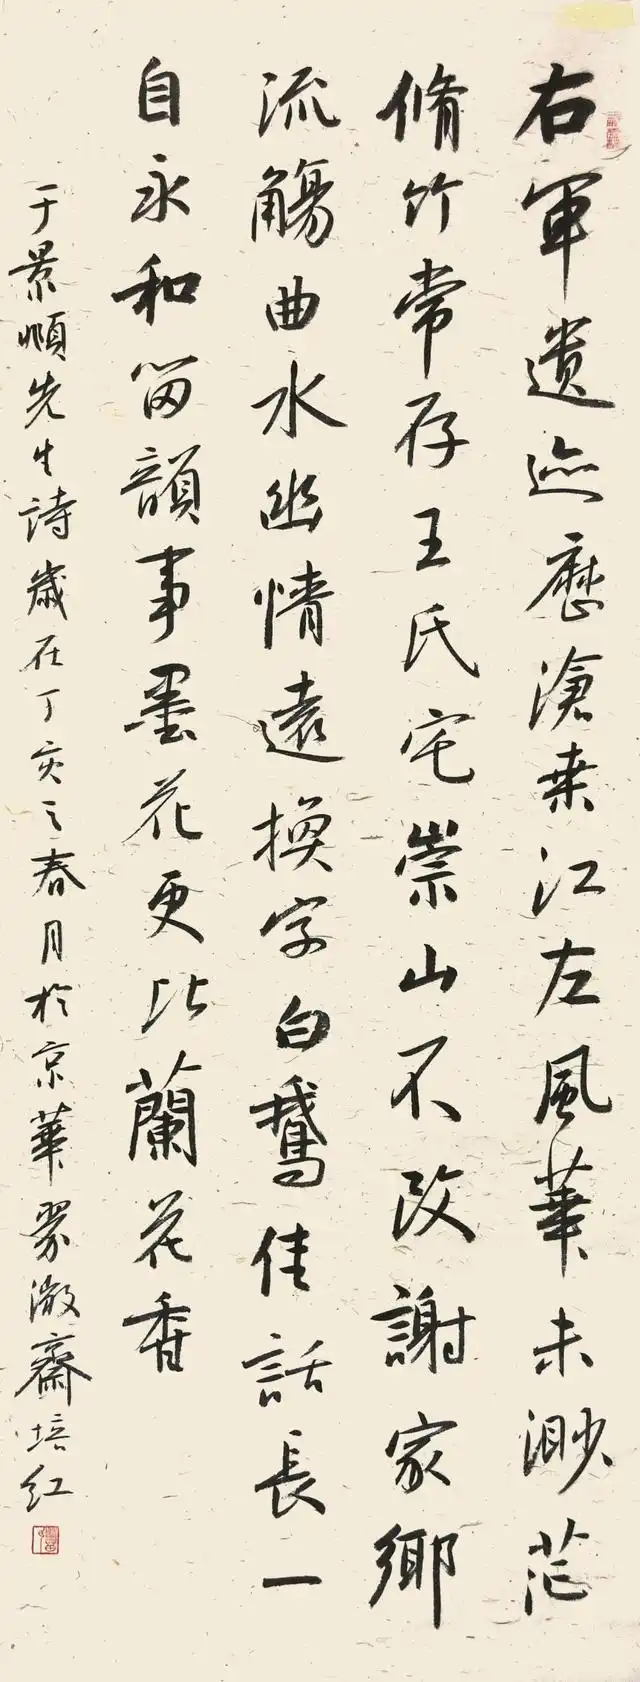 右軍遺迹歷滄桒江左風華未渺茫
脩竹常存王氏宅崇山不改謝家鄉
流觴曲水幽情遠換字白鵝佳話長一
自永和留韻事墨花更比蘭花香
于景頫先生詩歲在丁亥之春月於京華翏澂齋培红